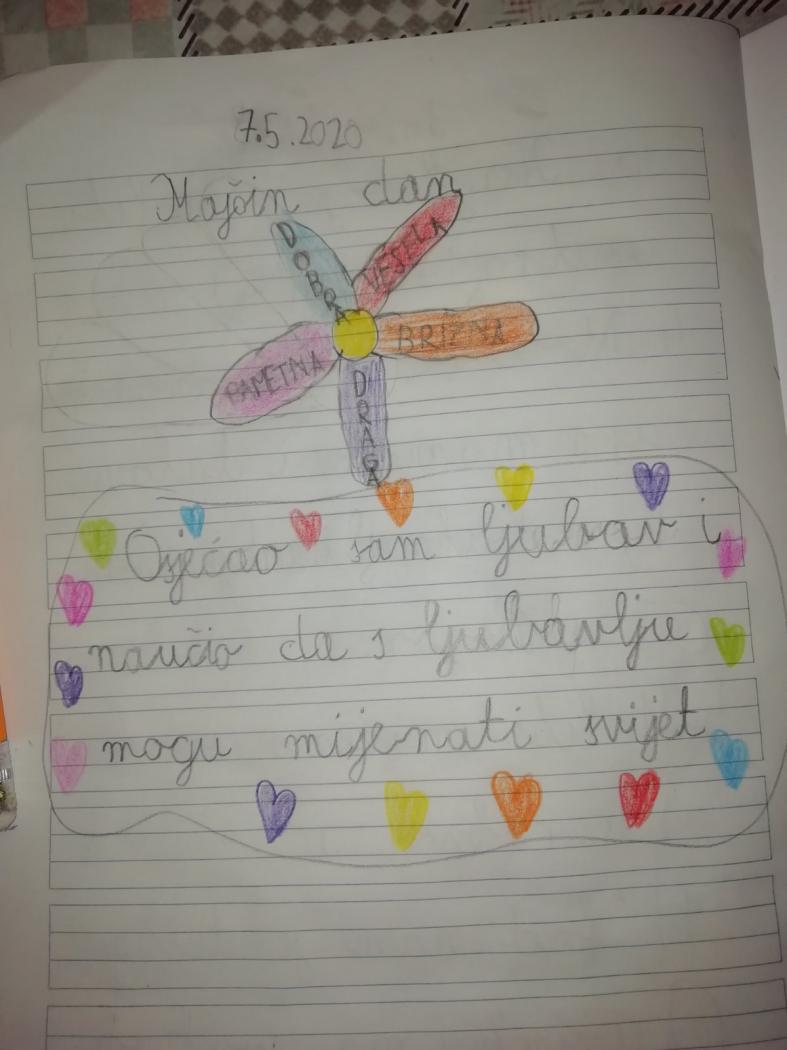 7.5.2020
Majčin dan
DOBRA
VESELA
BRIŽNA
DRAGA
PAMETNA
Osjećao sam ljubav i
naučio da s ljubavlju
mogu mijenati svijet